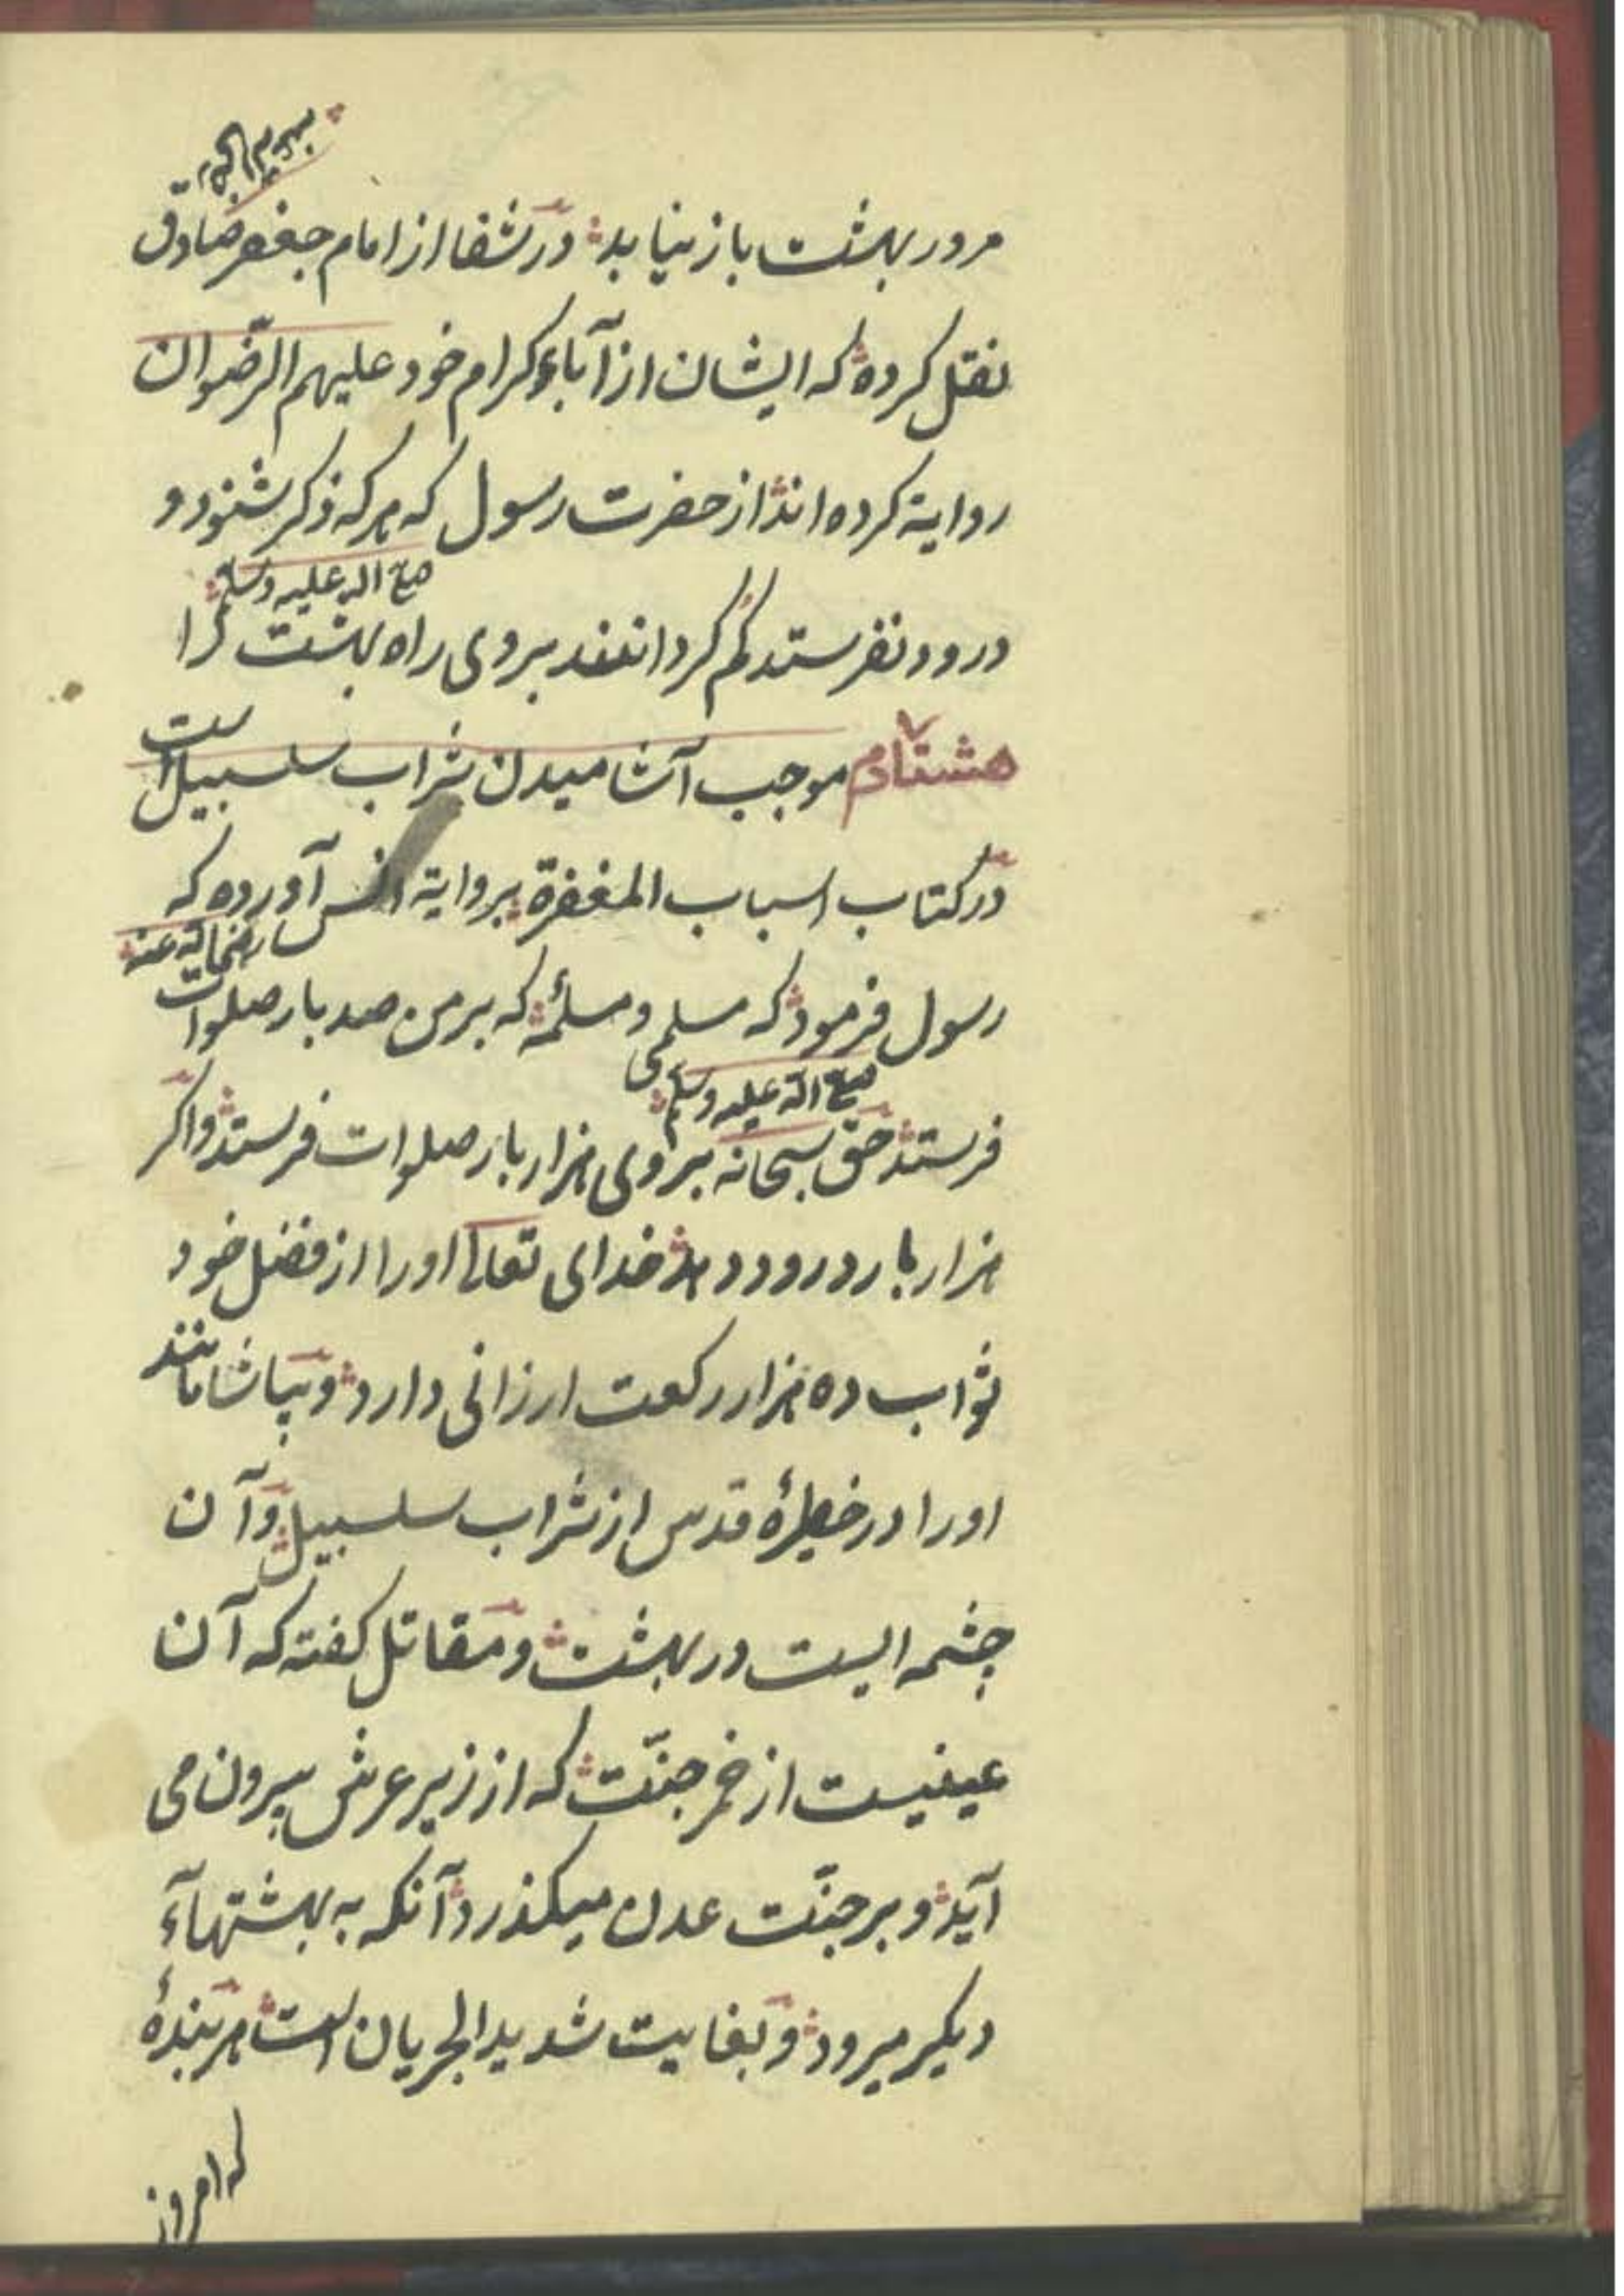 مرور بهشت باز نیابد در شفا از امام جعفر صادق
نقل کرده که ایشان از آباء کرام خود علیهم الرّضوان
روایة کرده اند از حضرت رسول که هر که ذکر شنود و
صلی الله علیه وسلم
درود نفرستد کم کردانند بروی راه بهشت را
هشتادم موجب آشامیدن شراب سلسبیل است
در کتاب اسباب المغفرة بروایة انس آورده که
رضی الله عنه
رسول فرمود که مسلمی و مسلمهٔ که بر من صد بار صلوات
صلی الله علیه وسلم
فرستد حق سبحانه بروی هزار بار صلوات فرستد و اکر
هزار بار درود دهد خدای تعالی اورا از فضل خود
ثواب ده هزار رکعت ارزانی دارد و بیاشامانند
اورا در خطیرهٔ قدس از شراب سلسبیل و آن
چشمه ایست در بهشت و مقاتل کفته که آن
عینیست از خمر جنّت که از زیر عرش بیرون می
آید و بر جنّت عدن میکذرد آنکه به بهشتهآء
دیکر میرود و بغایت شدید الجریان است هر بندهٔ
که امروز